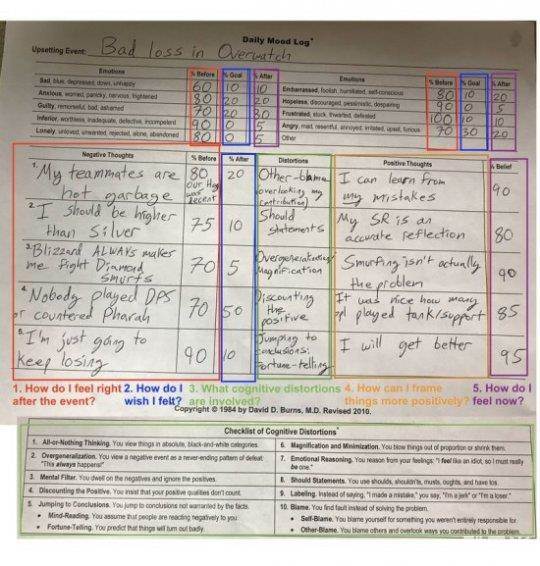 Daily Mood Log*
Upsetting Event: Bad loss in Overwatch
Emotions % Before % Goal % After Emotions % Before % Goal % After
Bad, blue, depressed, down, unhappy 60 10 10 Embarrassed, foolish, humiliated, self-conscious 80 10 20
Anxious, worried, panicky, nervous, frightened 80 20 20 Hopeless, discouraged, pessimistic, despairing 90 0 5
Guilty, remorseful, bad, ashamed 70 20 30 Frustrated, stuck, thwarted, defeated 100 10 10
Inferior, worthless, inadequate, defective, incompetent 90 0 5 Angry, mad, resentful, annoyed, irritated, upset, furious 70 30 20
Lonely, unloved, unwanted, rejected, alone, abandoned 80 0 5 Other
Negative Thoughts % Before % After Distortions Positive Thoughts % Belief
1. My teammates are 80 20 Other-blame I can learn from 90
hot garbage our Hog was decent (overlooking my contribution) my mistakes
2. I should be higher 75 10 Should My SR is an 80
than Silver statements accurate reflection
3. Blizzard ALWAYS makes 70 5 Overgeneralization/ Smurfing isn't actually 90
me fight Diamond smurfs Magnification the problem
4. Nobody played DPS 70 50 Discounting It was nice how many 85
or countered Pharah the positive ppl played tank/support
5. I'm just going to 90 10 Jumping to conclusions: I will get better 95
keep losing Fortune-telling
1. How do I feel right 2. How do I 3. What cognitive distortions 4. How can I frame 5. How do I
after the event? wish I felt? are involved? things more positively? feel now?
Copyright © 1984 by David D. Burns, M.D. Revised 2010.
Checklist of Cognitive Distortions*
1. All-or-Nothing Thinking. You view things in absolute, black-and-white categories. 6. Magnification and Minimization. You blow things out of proportion or shrink them.
2. Overgeneralization. You view a negative event as a never-ending pattern of defeat: 7. Emotional Reasoning. You reason from your feelings: "I feel like an idiot, so I must really
"This always happens!" be one."
3. Mental Filter. You dwell on the negatives and ignore the positives. 8. Should Statements. You use shoulds, shouldn'ts, musts, oughts, and have tos.
4. Discounting the Positive. You insist that your positive qualities don't count. 9. Labeling. Instead of saying, "I made a mistake," you say, "I'm a jerk" or "I'm a loser."
5. Jumping to Conclusions. You jump to conclusions not warranted by the facts. 10. Blame. You find fault instead of solving the problem.
• Mind-Reading. You assume that people are reacting negatively to you. • Self-Blame. You blame yourself for something you weren't entirely responsible for.
• Fortune-Telling. You predict that things will turn out badly. • Other-Blame. You blame others and overlook ways you contributed to the problem.